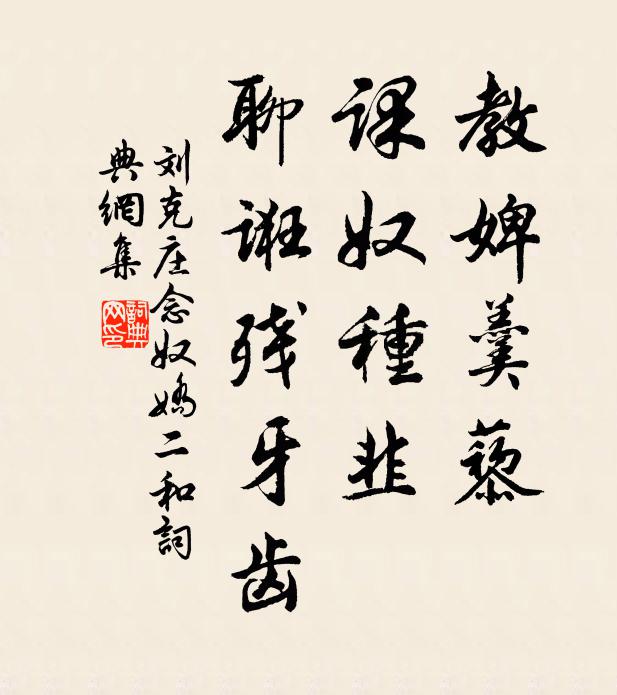 教婢羹藜
课奴種韭
聊诳残牙齿
刘克庄念奴嬌二和詞
典網集
詞典網印